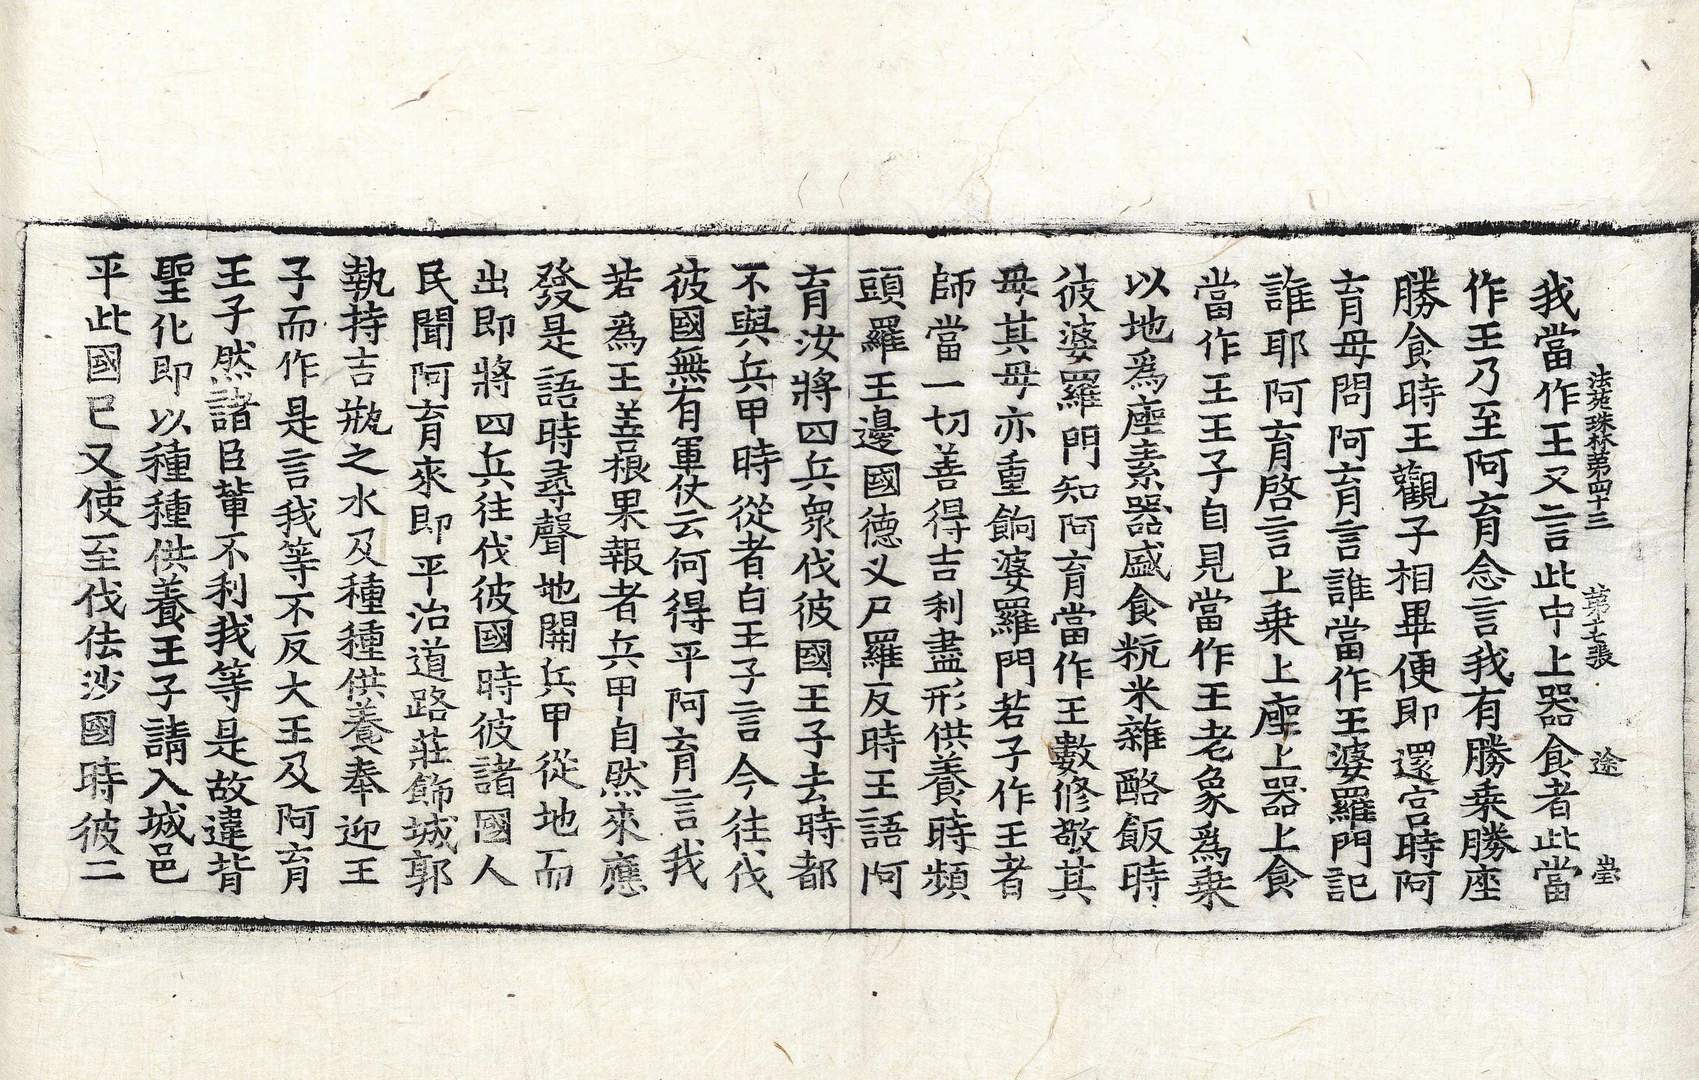 法苑珠林第四十三　第七張　途　瑩
我當作王又言此中上器食者此當
作王乃至阿育念言我有勝乗勝座
勝食時王觀子相畢便即還宮時阿
育母問阿育言誰當作王婆羅門記
誰耶阿育啓言上乗上座上器上食
當作王王子自見當作王老象爲乗
以地爲座素器盛食粇米雜酪飯時
彼婆羅門知阿育當作王數修敬其
母其母亦重餉婆羅門若子作王者
師當一切善得吉利盡形供養時頻
頭羅王邊國德叉尸羅反時王語阿
育汝將四兵衆伐彼國王子去時都
不與兵甲時從者白王子言今往伐
彼國無有軍仗云何得平阿育言我
若爲王善根果報者兵甲自然來應
發是語時尋聲地開兵甲從地而
出即將四兵往伐彼國時彼諸國人
民聞阿育來即平治道路莊飾城郭
執持吉瓶之水及種種供養奉迎王
子而作是言我等不反大王及阿育
王子然諸臣輩不利我等是故違背
聖化即以種種供養王子請入城邑
平此國已又使至伐佉沙國時彼二